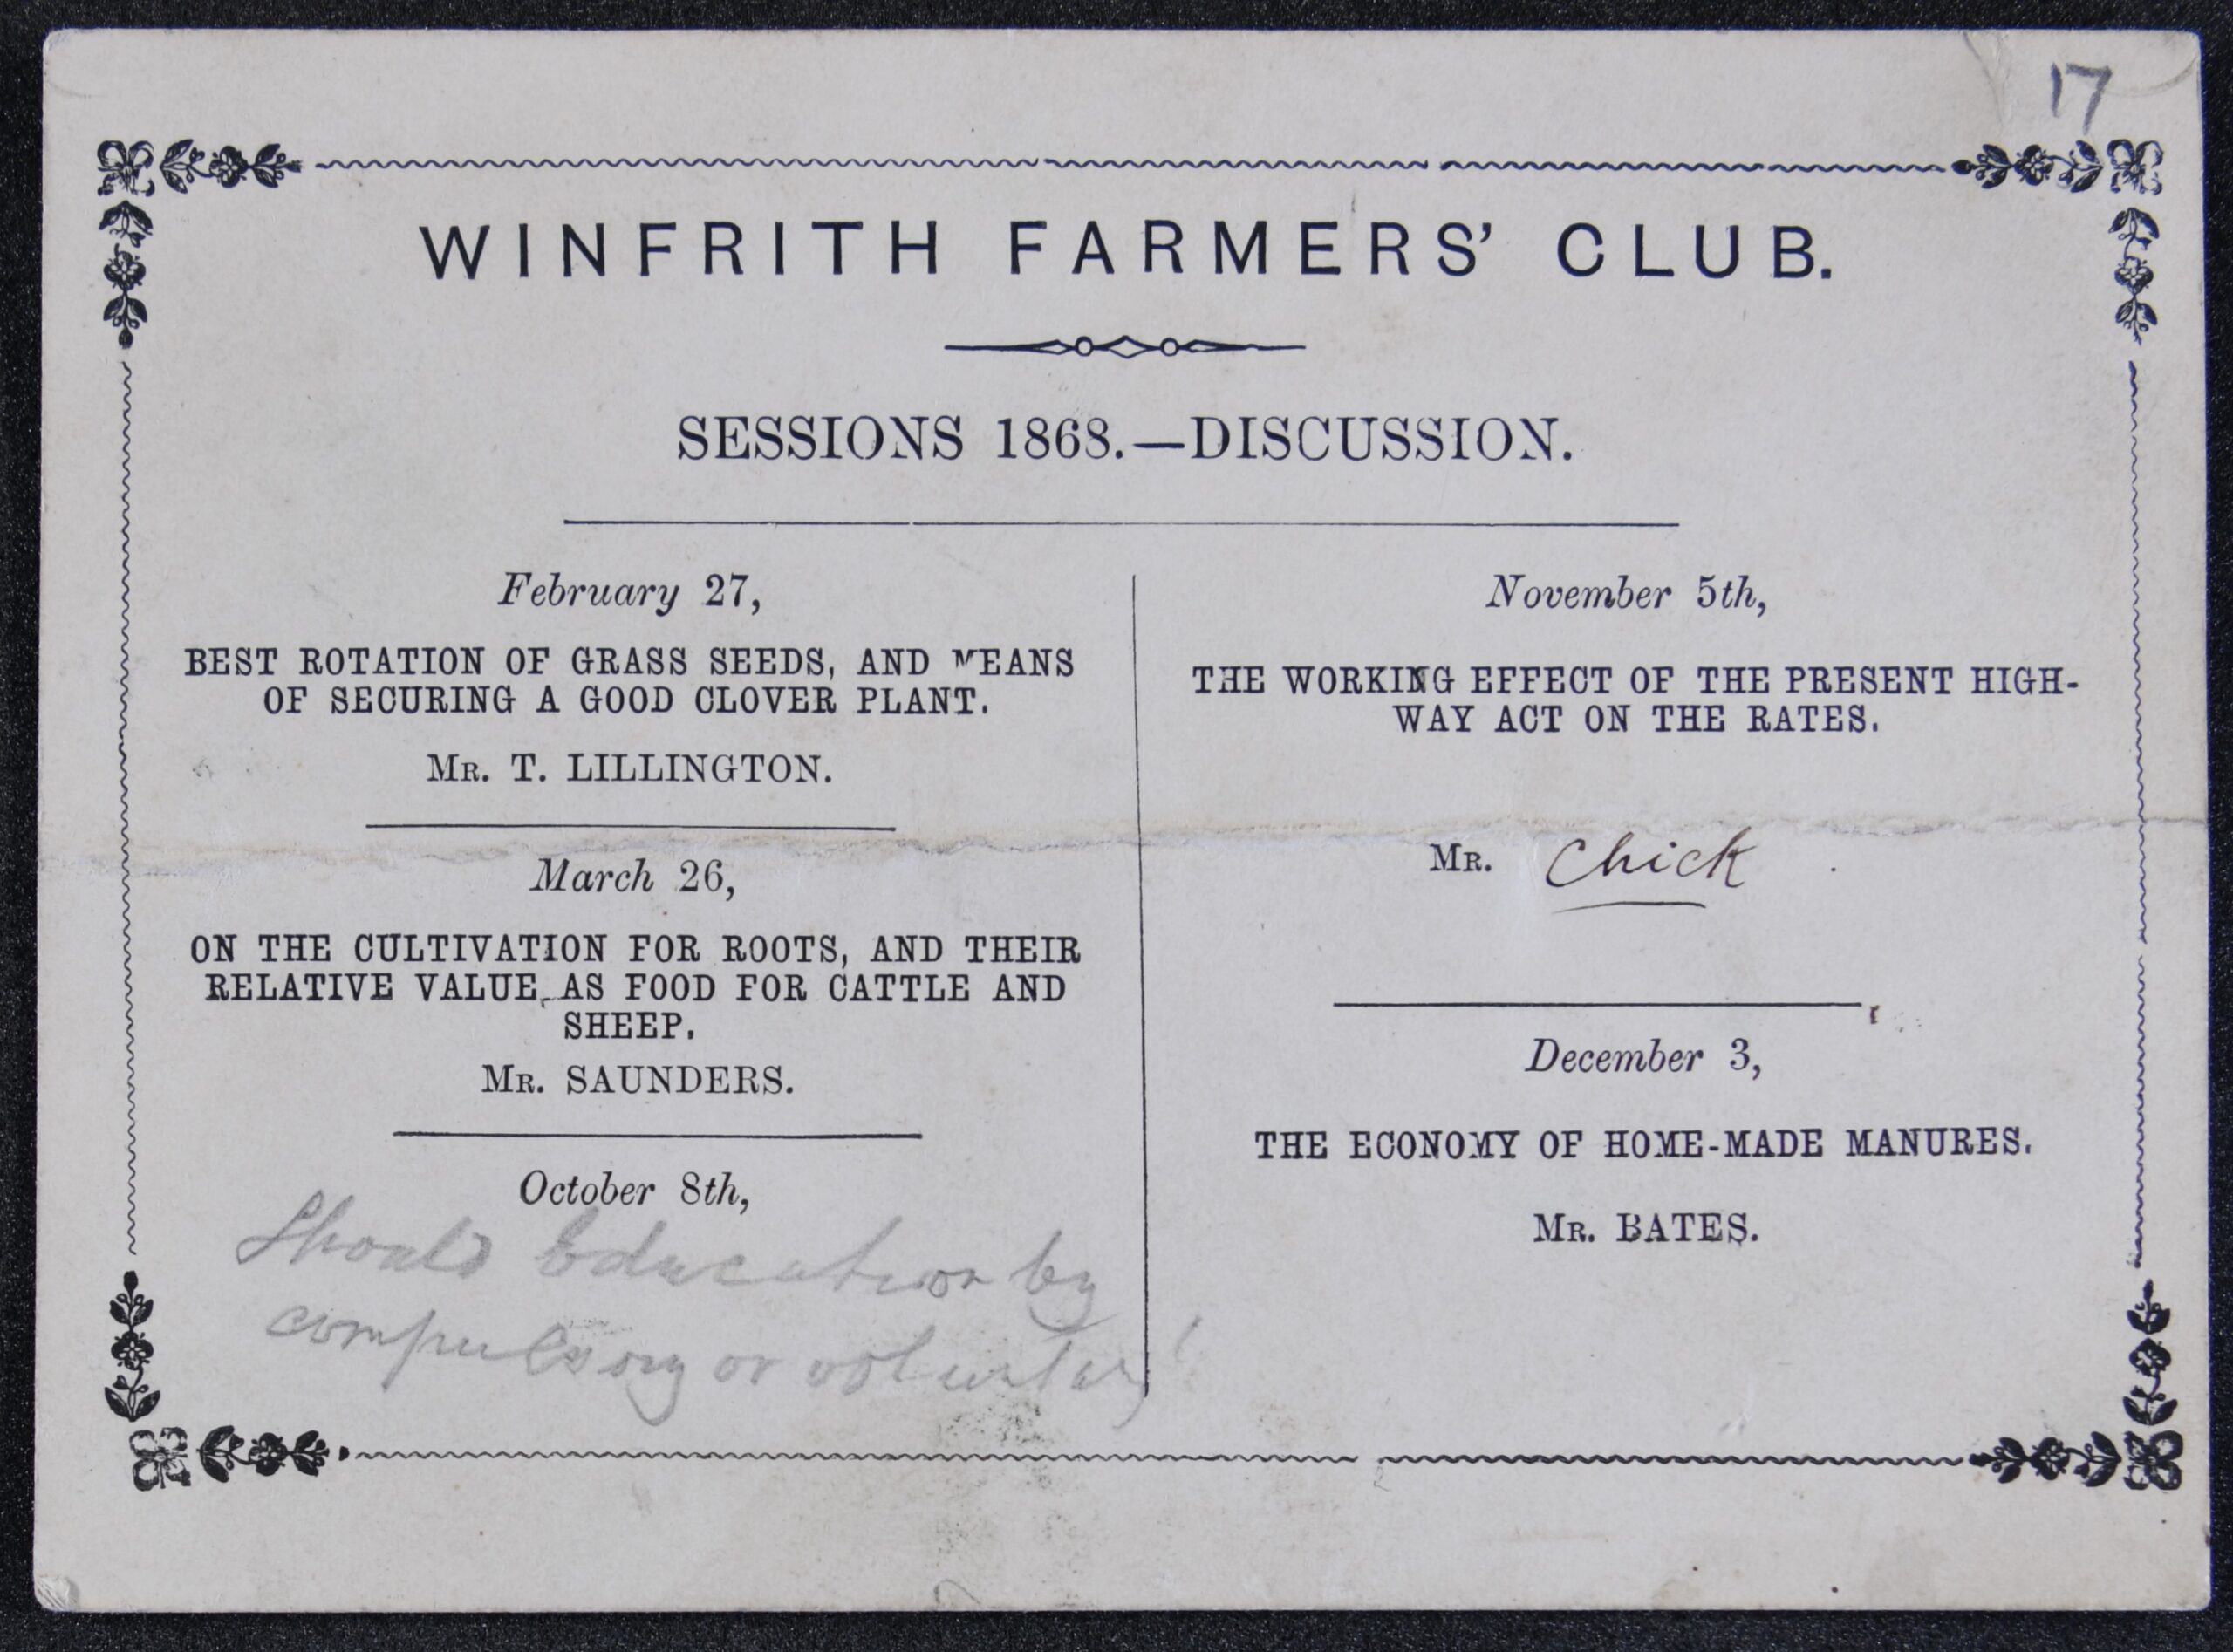 17
WINFRITH FARMERS' CLUB.
SESSIONS 1868.—DISCUSSION.
February 27,
BEST ROTATION OF GRASS SEEDS, AND MEANS
OF SECURING A GOOD CLOVER PLANT.
MR. T. LILLINGTON.
March 26,
ON THE CULTIVATION FOR ROOTS, AND THEIR
RELATIVE VALUE AS FOOD FOR CATTLE AND
SHEEP.
MR. SAUNDERS.
October 8th,
Should Education by
compulsory or voluntary!
November 5th,
THE WORKING EFFECT OF THE PRESENT HIGH-
WAY ACT ON THE RATES.
MR. Chick.
December 3,
THE ECONOMY OF HOME-MADE MANURES.
MR. BATES.